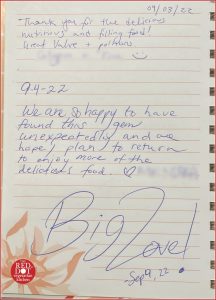 09/03/22
- Thank you for the delicious
nutritious and filling food!
Great Value + portions
9-4-22
We are so happy to have
found this gem
unexpectedly and we
hope / plan to return
to enjoy more of the
delicious food. ♡
Big Love!
Sep 4, 22
RED
DOT